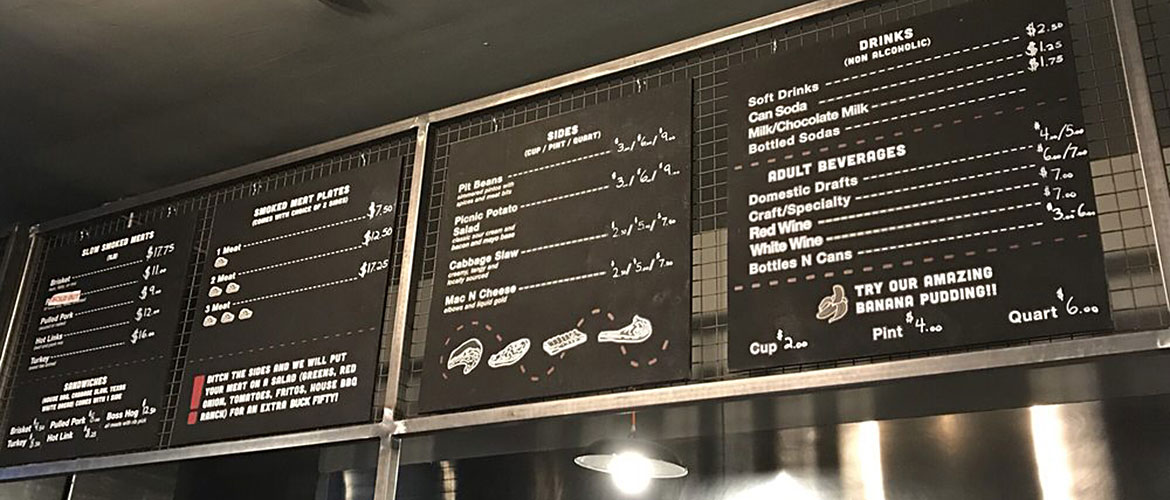 SLOW SMOKED MEATS
Brisket $17.75
SOLD OUT $11.00
Pulled Pork $9.00
Hot Links $12.00
Turkey $16.00
SANDWICHES
WHITE BREAD) COMES WITH 1 SIDE
Brisket Pulled Pork Boss Hog
Turkey Hot Link
SMOKED MEAT PLATES
(COMES WITH CHOICE OF 2 SIDES)
1 Meat $7.50
2 Meat $12.50
3 Meat $17.25
DITCH THE SIDES AND WE WILL PUT
YOUR MEAT ON A SALAD (GREENS, RED
ONION, TOMATOES, FRITOS, HOUSE BBQ
RANCH) FOR AN EXTRA BUCK FIFTY!
SIDES
(CUP / PINT / QUART)
Pit Beans $3.00/$6.00/$9.00
simmered pintos with
spices and meat bits
Picnic Potato $3./$6./$9.00
Salad
classic sour cream and
bacon and mayo base
Cabbage Slaw $2.50/$5.00/$7.00
creamy, tangy and
locally sourced
Mac N Cheese $2.50/$5.00/$7.00
elbows and liquid gold
DRINKS
(NON ALCOHOLIC)
Soft Drinks $2.50
Can Soda $1.25
Milk/Chocolate Milk $1.75
Bottled Sodas
ADULT BEVERAGES
Domestic Drafts $4.00/5.00
Craft/Specialty $6.00/7.00
Red Wine $7.00
White Wine $7.00
Bottles N Cans $3.00-6.00
TRY OUR AMAZING
BANANA PUDDING!!
Cup $2.00 Pint $4.00 Quart $6.00